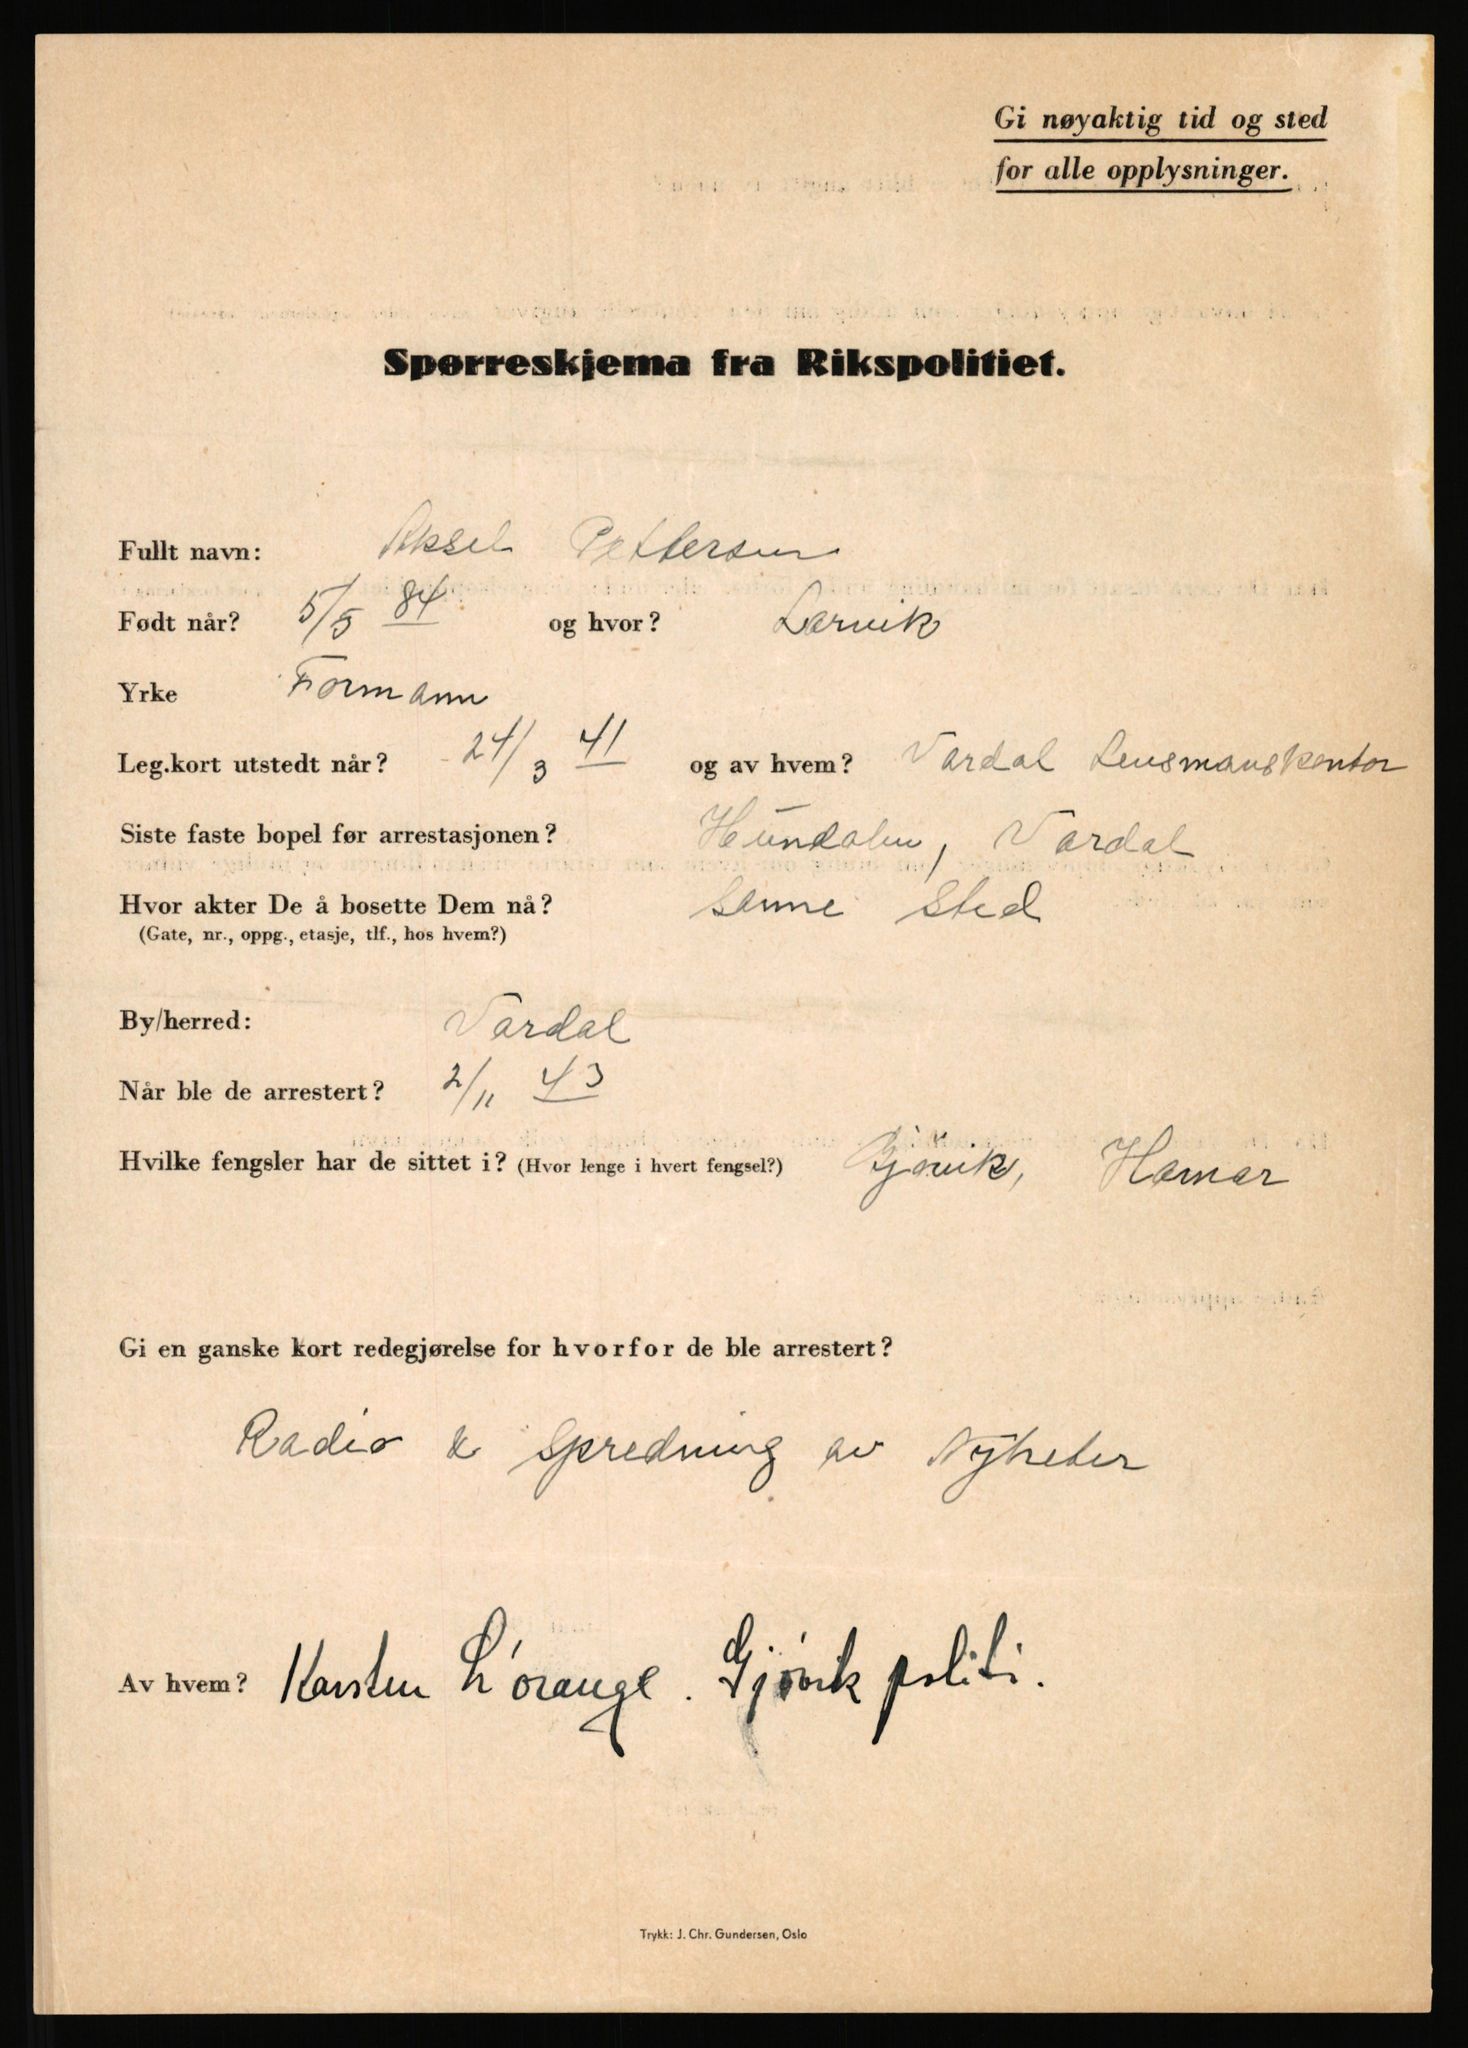 Gi nøyaktig tid og sted
for alle opplysninger.
Spørreskjema fra Rikspolitiet.
Fullt navn: Aksel Pettersen
Født når? 5/5 84 og hvor? Larvik
Yrke Formann
Leg.kort utstedt når? 24/3 41 og av hvem? Vardal Lensmanskontor
Siste faste bopel før arrestasjonen? Hundalen, Vardal
Hvor akter De å bosette Dem nå? samme sted
(Gate, nr., oppg., etasje, tlf., hos hvem?)
By/herred: Vardal
Når ble de arrestert? 2/11 43
Hvilke fengsler har de sittet i? (Hvor lenge i hvert fengsel?) Gjövik, Hamar
Gi en ganske kort redegjørelse for hvorfor de ble arrestert?
Radio & Spredning av Nyheter
Av hvem? Karsten L'orange. Gjövik politi.
Trykk: J. Chr. Gundersen, Oslo